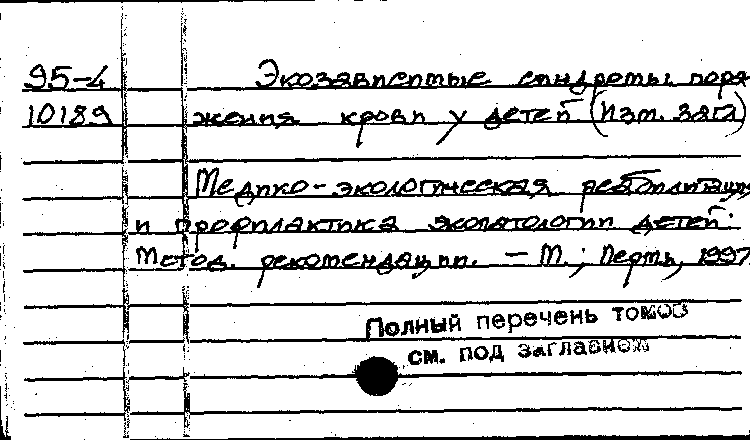 95-4 Экозависимые синдромы пора
10189 жения крови у детей (Изм. загл)
Медико-экологическая реабилитация
и профилактика экопатологии детей:
Метод. рекомендации. — М.; Пермь, 1997
Полный перечень томов
см. под заглавием